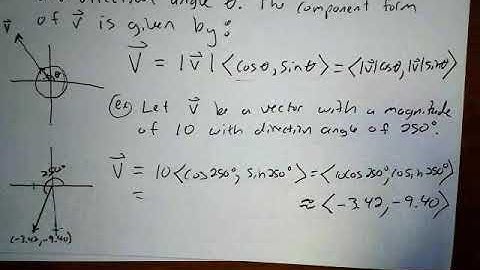 direction angle θ. The component form
of v⃗ is given by:
v⃗
θ
V⃗ = |v⃗| ⟨cosθ, sinθ⟩ = ⟨|v⃗|cosθ, |v⃗|sinθ⟩
(ex) Let v⃗ be a vector with a magnitude
of 10 with direction angle of 250°.
250°
v⃗ = 10⟨cos250°, sin250°⟩ = ⟨10cos250°, 10sin250°⟩
= ≈ ⟨-3.42, -9.40⟩
(-3.42, -9.40)